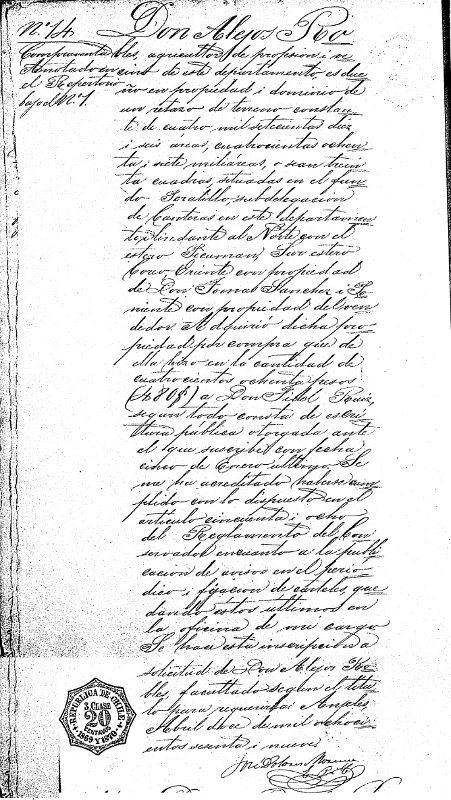 Nº 14.
Compraventa
Anotado en
el Repertorio
bajo el Nº 7.
Don Alejos Ro
bles, agricultor de profesion i ve
cino de este departamento es due
ño en propiedad i dominio de
un retazo de terreno constan
te de cuatro mil setecientas diez
i seis areas, cuatrocientas ochen
ta i siete miliáreas, o sean trein
ta cuadras, situadas en el fun
do Peralillo, subdelegacion
de Canteras en este departamen
to, i lindante al Norte con el
estero Picuman, Sur estero
Coreo, Oriente con propiedad
de Don Tomas Sanchez i Po
niente con propiedad del ven
dedor. Adquirió dicha pro
piedad por compra que de
ella hizo en la cantidad de
cuatrocientos ochenta pesos
(480$) a Don Fidel Ruiz,
segun todo consta de escri
tura pública otorgada ante
el que suscribe con fecha
cinco de Enero último. Se
me ha acreditado haberse cum
plido con lo dispuesto en el
artículo cincuenta i ocho
del Reglamento del Con
servador en cuanto a la publi
cacion de avisos en el perió
dico i fijacion de carteles, que
dando estos ultimos en
la oficina de mi cargo
Se hace esta inscripcion a
solicitud de Don Alejos Ro
bles, facultado segun el títu
lo para requerirla. Anjeles,
Abril doce de mil ochoci
entos sesenta i nueve
José Dolores
REPUBLICA DE CHILE
3. CLASE
20
CENTAVOS
1869 Y 1870